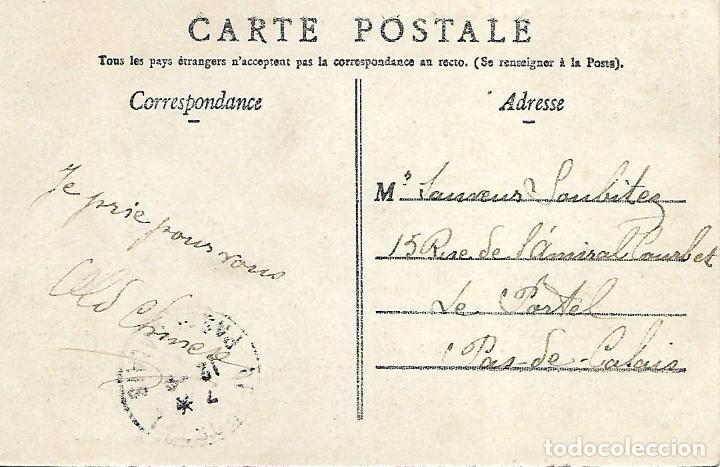 CARTE POSTALE
Tous les pays étrangers n'acceptent pas la correspondance au recto. (Se renseigner à la Poste).
Correspondance
Adresse
Je prie pour vous
Old
Mr Sauveur Soubitez
15 Rue de l'Amiral Courbet
Le Portel
Pas-de-Calais
todocoleccion